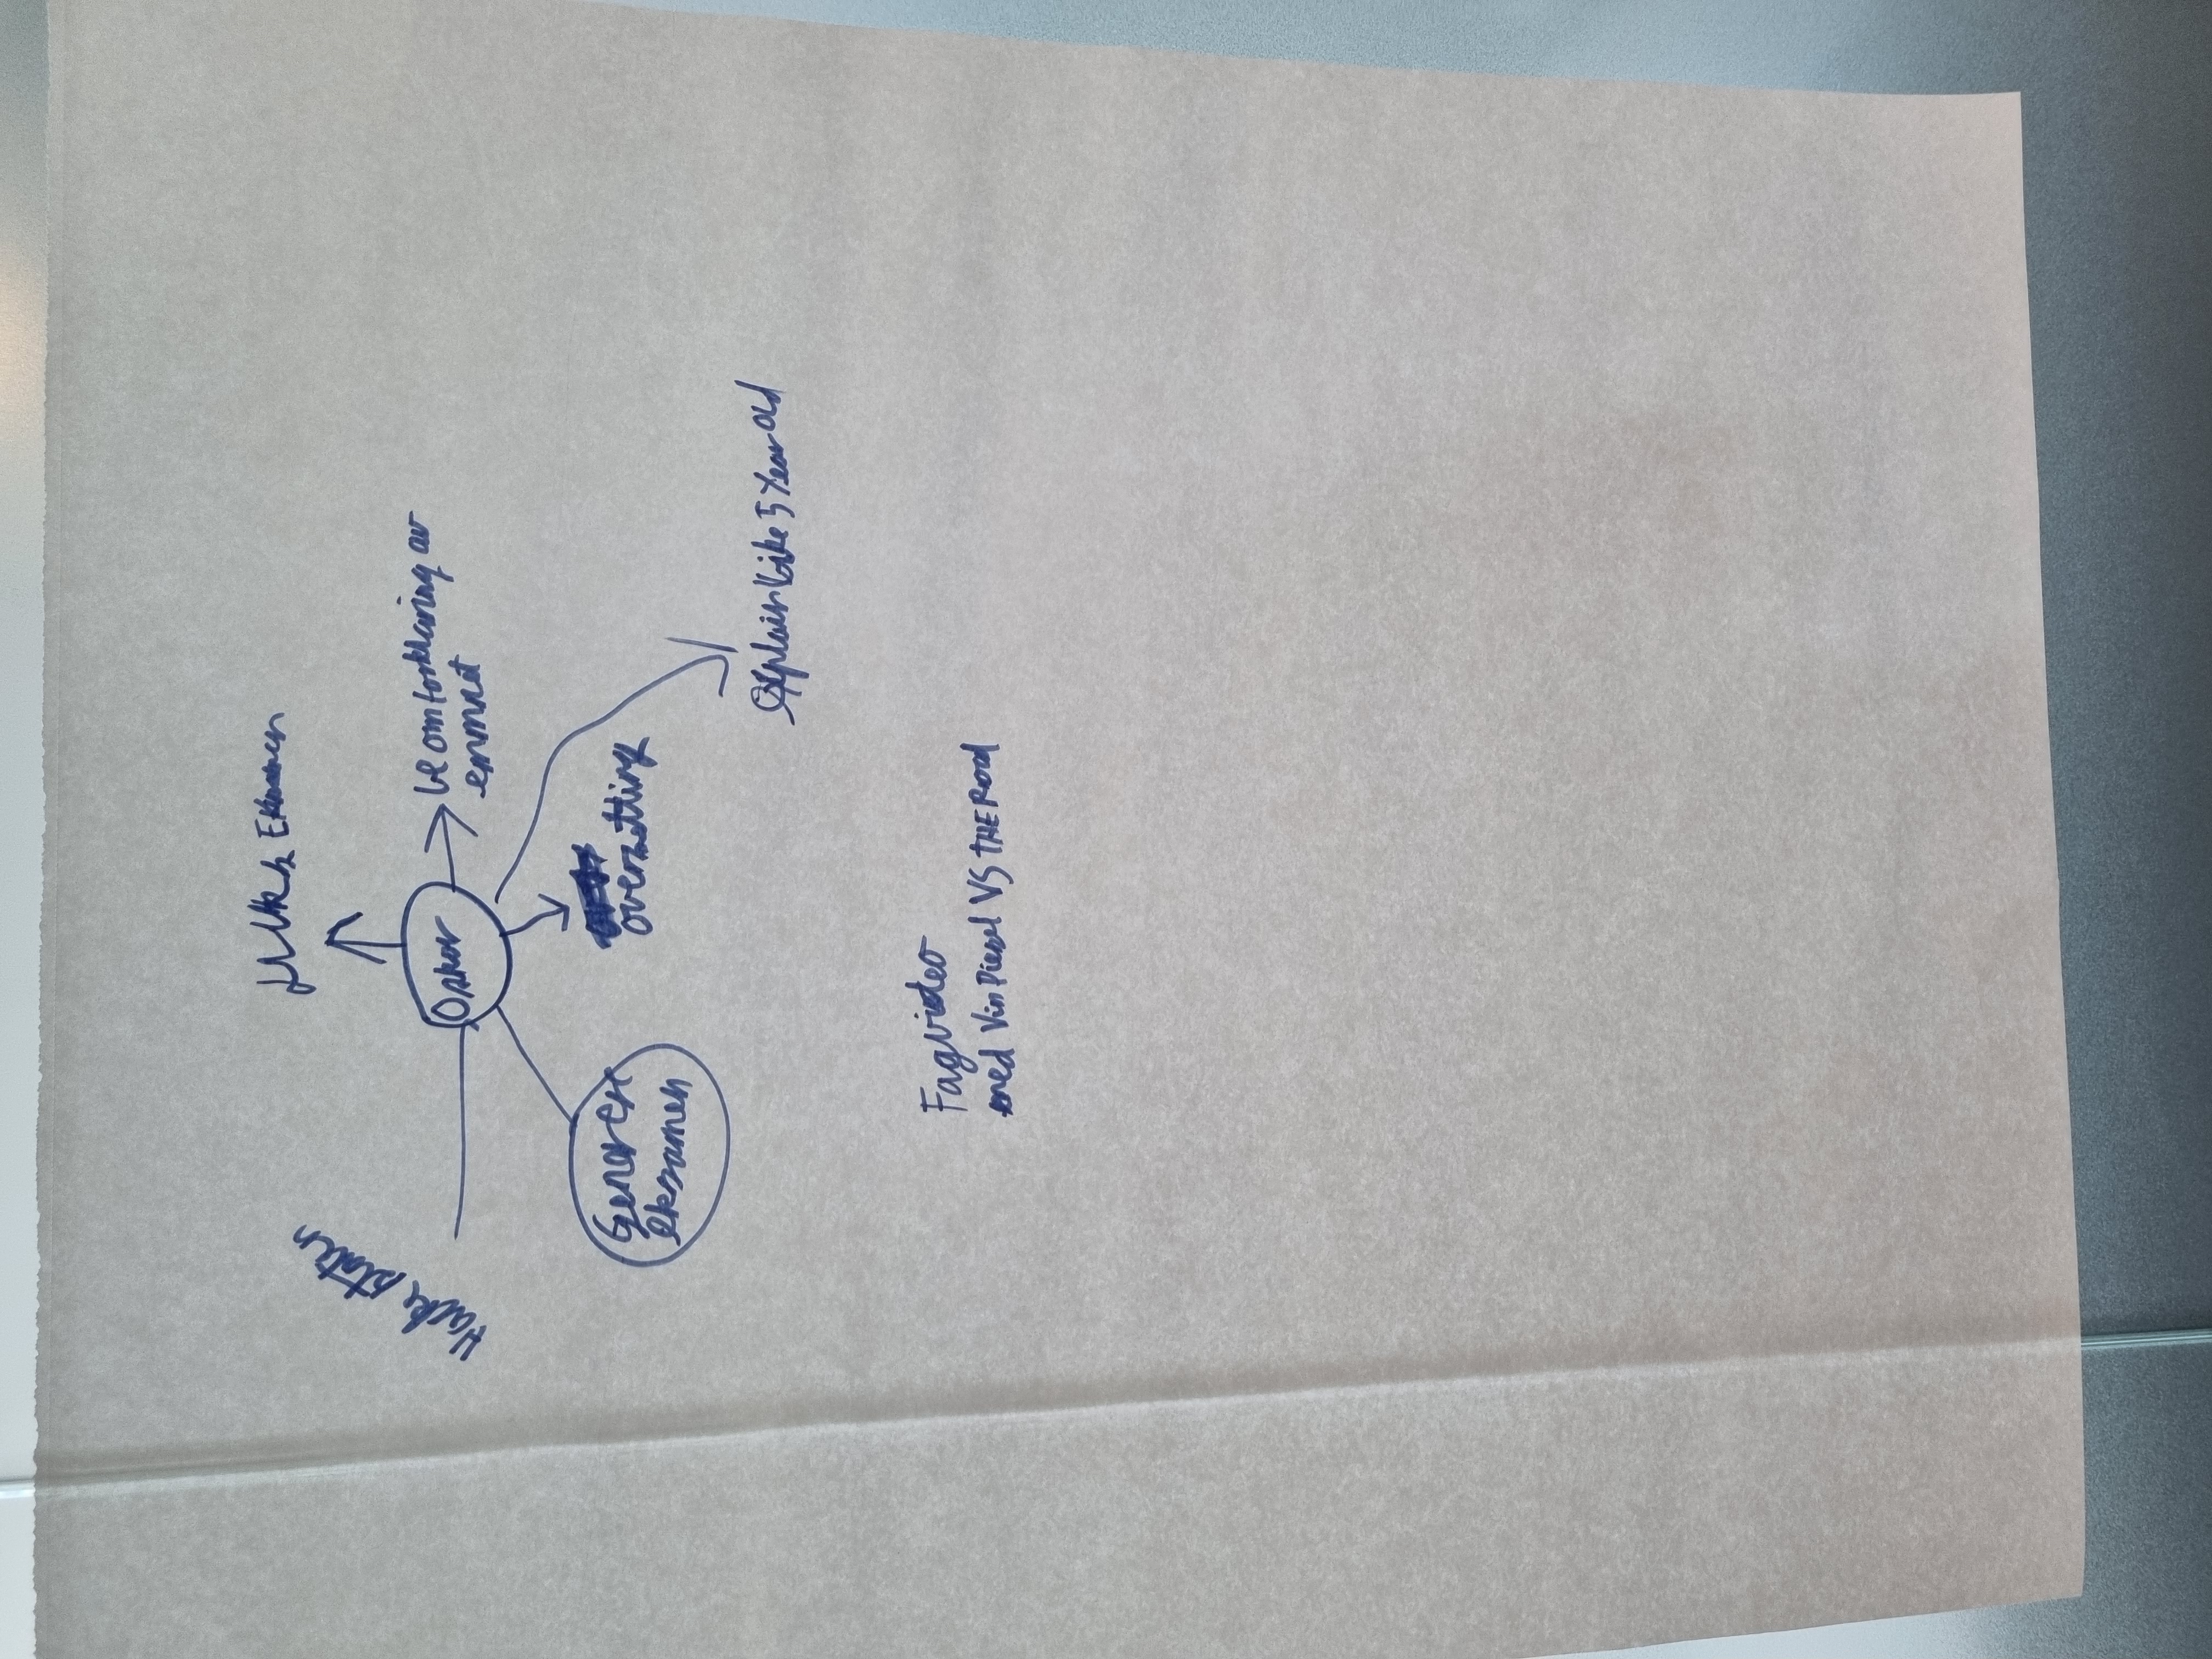 Eksamen
Hacke staten
Oskar
be om forklaring av
emmnet
Generere
eksamen
oversetting
Explain like 5 Year Old
Fagvideo
med Vin Diesel VS THE ROad